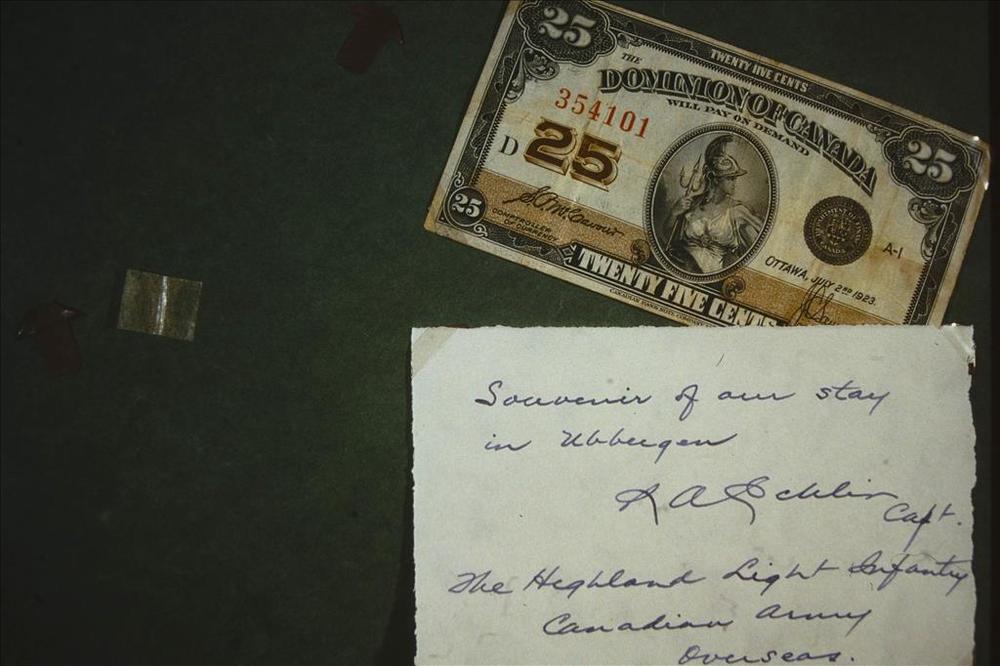 25
TWENTY FIVE CENTS
THE
DOMINION OF CANADA
WILL PAY ON DEMAND
354101
D 25
25
25
COMPTROLLER
OF CURRENCY
A-1
OTTAWA, JULY 2ND 1923.
TWENTY FIVE CENTS
Souvenir of our stay
in Ubbergen
R A Ecklin
Capt.
The Highland Light Infantry
Canadian Army
Overseas.